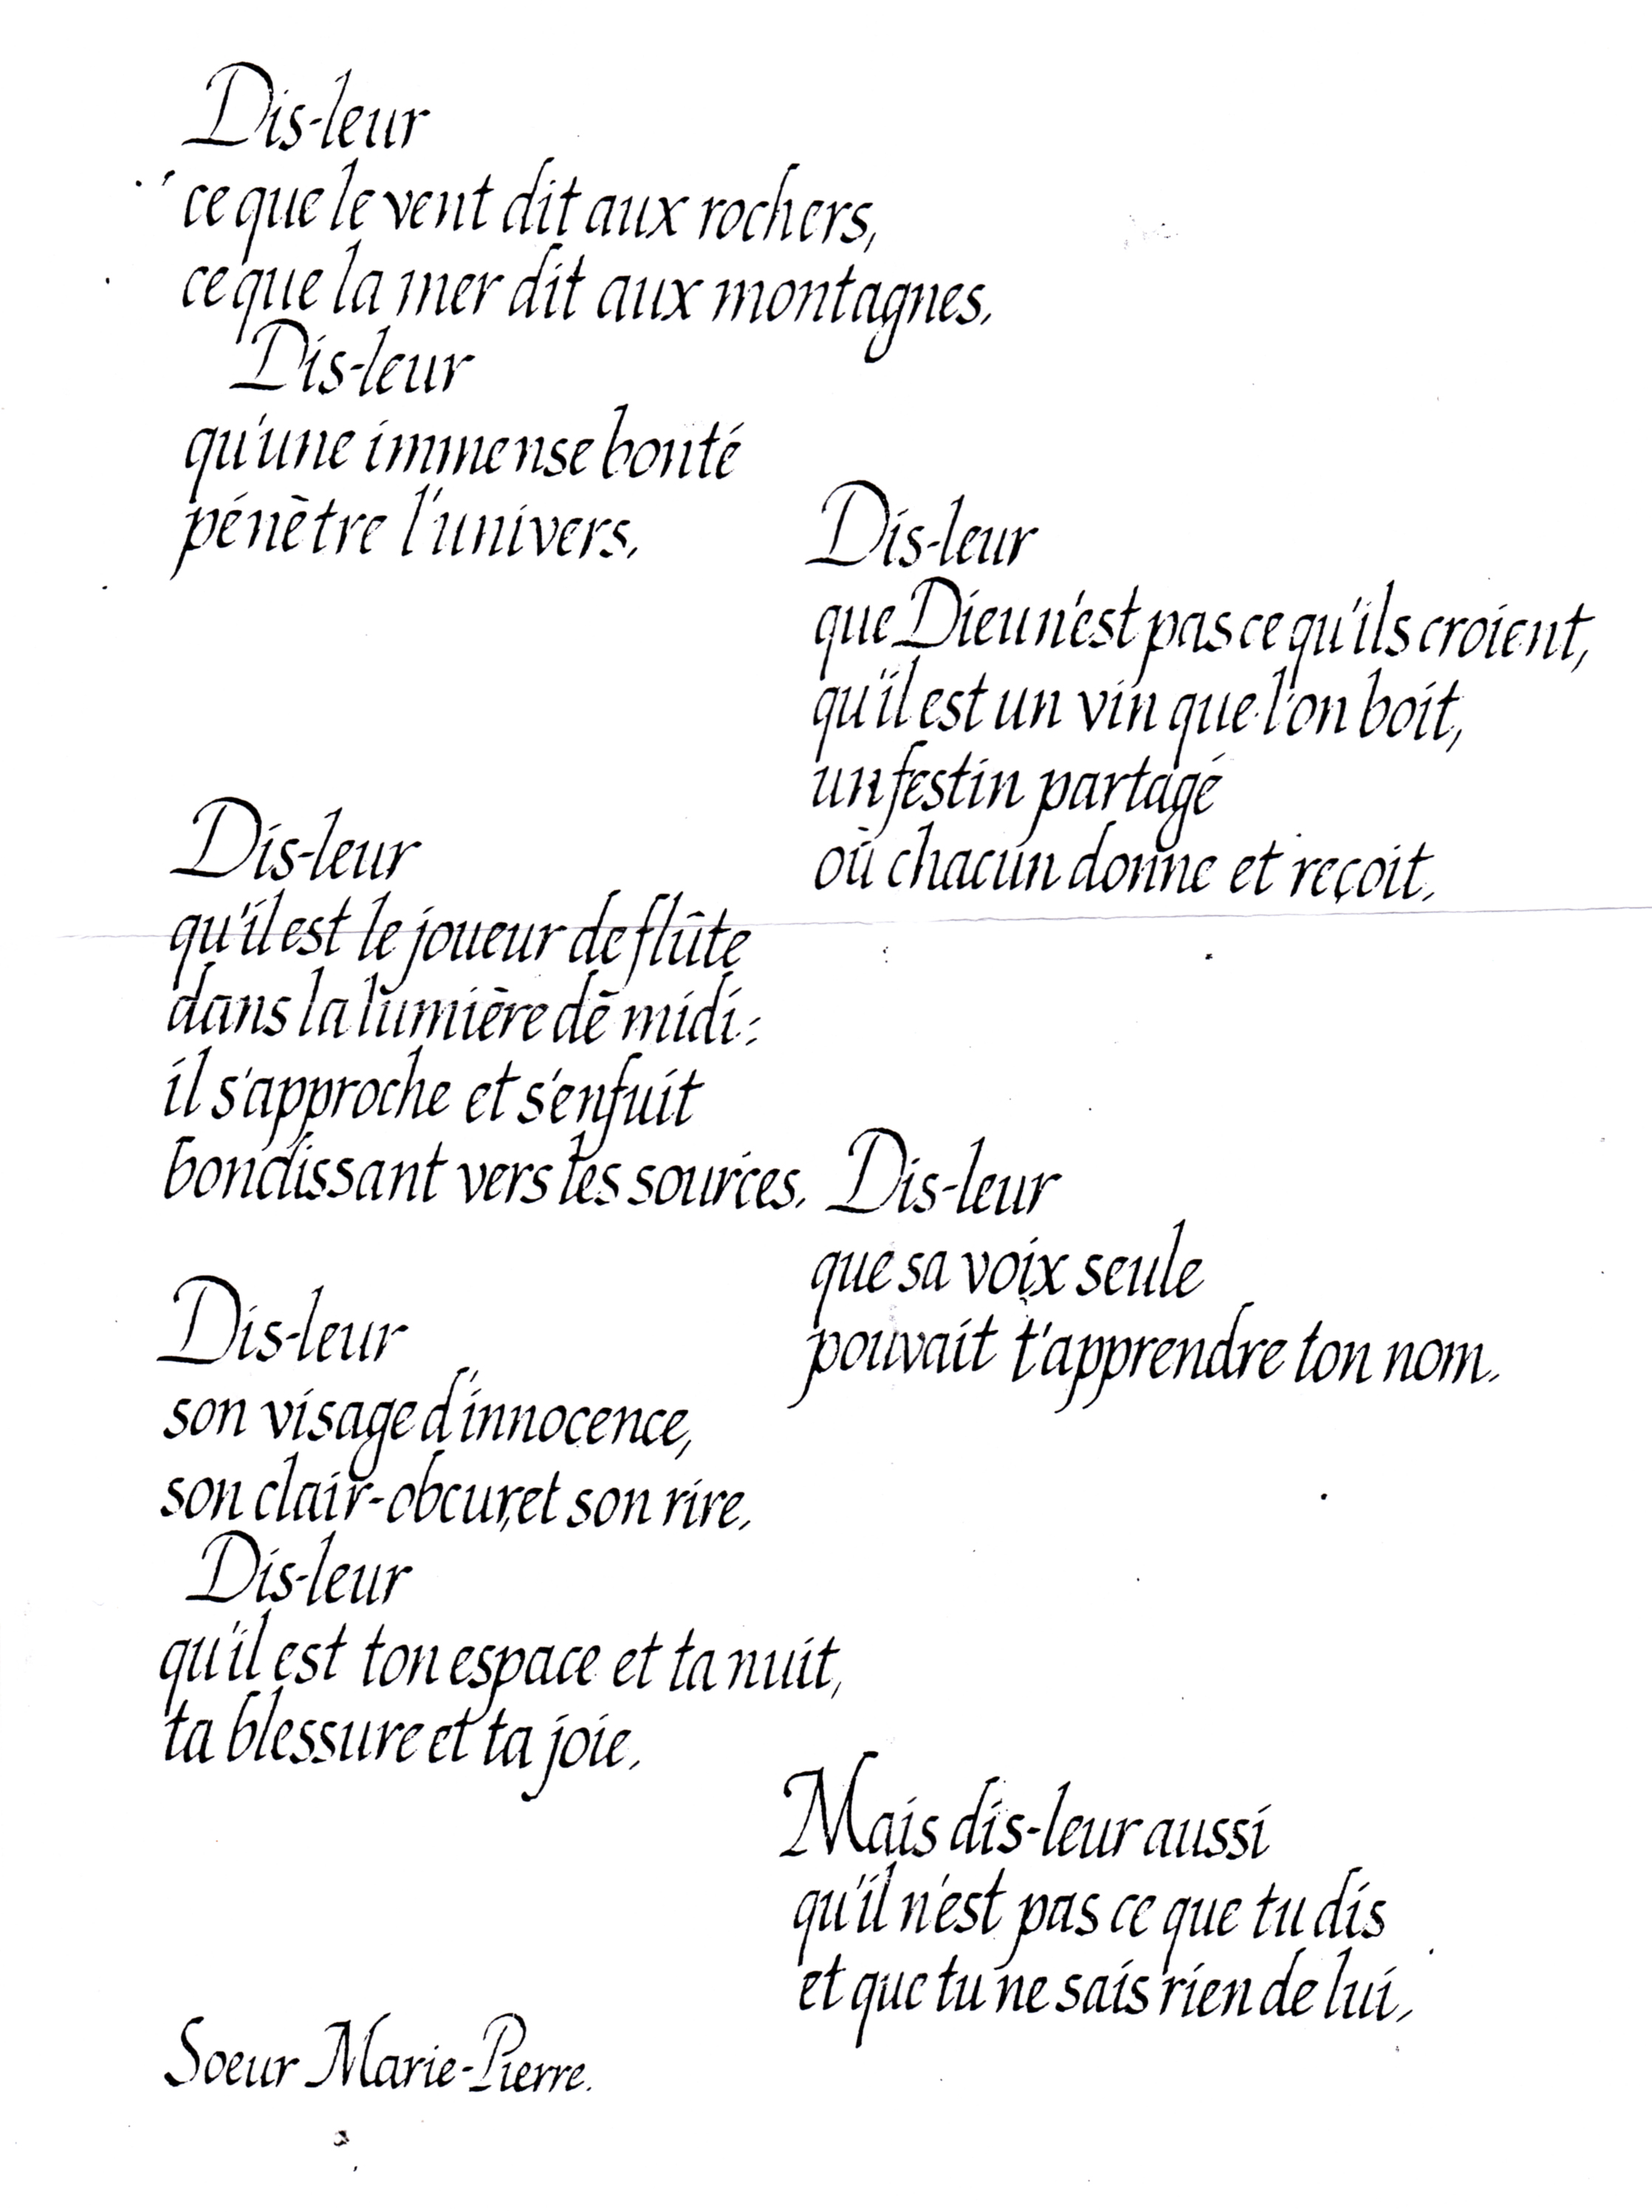 Dis-leur
ce que le vent dit aux rochers,
ce que la mer dit aux montagnes.
Dis-leur
qu'une immense bonté
pénètre l'univers.
Dis-leur
que Dieu n'est pas ce qu'ils croient,
qu'il est un vin que l'on boit,
un festin partagé
où chacun donne et reçoit.
Dis-leur
qu'il est le joueur de flûte
dans la lumière de midi :
il s'approche et s'enfuit
bondissant vers les sources.
Dis-leur
que sa voix seule
pouvait t'apprendre ton nom.
Dis-leur
son visage d'innocence,
son clair-obcur, et son rire.
Dis-leur
qu'il est ton espace et ta nuit,
ta blessure et ta joie.
Mais dis-leur aussi
qu'il n'est pas ce que tu dis
et que tu ne sais rien de lui.
Soeur Marie-Pierre.